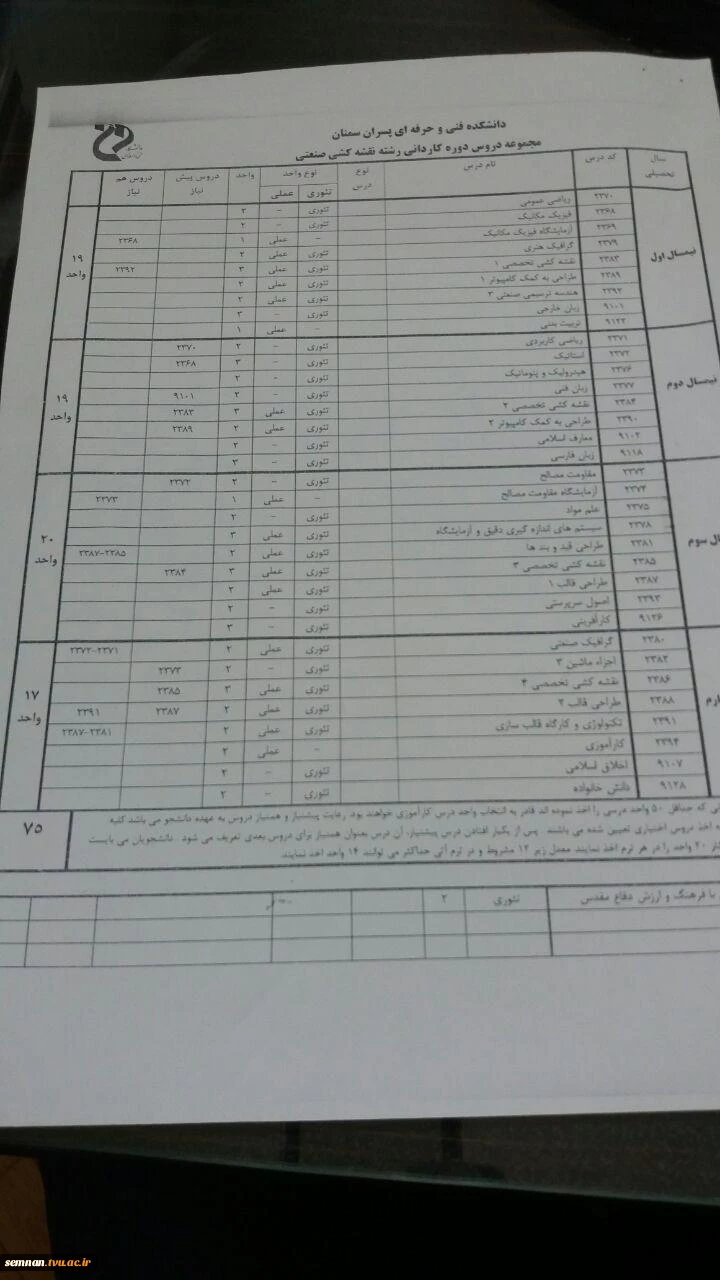 دانشکده فنی و حرفه ای پسران سمنان
مجموعه دروس دوره کاردانی رشته نقشه کشی صنعتی
سال تحصیلی کد درس نام درس نوع درس نوع واحد تئوری عملی واحد دروس پیش نیاز دروس هم نیاز
نیمسال اول
۲۳۷۰ ریاضی عمومی تئوری -
۲۳۶۸ فیزیک مکانیک تئوری - ۲
۲۳۶۹ آزمایشگاه فیزیک مکانیک - عملی ۱ ۲۳۶۸
۲۳۷۹ گرافیک هنری تئوری عملی ۲
۲۳۸۳ نقشه کشی تخصصی ۱ تئوری عملی ۳ ۲۳۹۲
۲۳۸۹ طراحی به کمک کامپیوتر ۱ تئوری عملی ۲
۲۳۹۲ هندسه ترسیمی صنعتی تئوری عملی ۲
۹۱۰۱ زبان خارجی تئوری - ۳
۹۱۲۳ تربیت بدنی - عملی ۱
۱۹ واحد
نیمسال دوم
۲۳۷۱ ریاضی کاربردی تئوری - ۲ ۲۳۷۰
۲۳۷۲ استاتیک تئوری - ۳ ۲۳۶۸
۲۳۷۶ هیدرولیک و پنوماتیک تئوری - ۲
۲۳۷۷ زبان فنی تئوری - ۲ ۹۱۰۱
۲۳۸۴ نقشه کشی تخصصی ۲ تئوری عملی ۳ ۲۳۸۳
۲۳۹۰ طراحی به کمک کامپیوتر ۲ تئوری عملی ۲ ۲۳۸۹
۹۱۰۲ معارف اسلامی تئوری - ۲
۹۱۱۸ زبان فارسی تئوری - ۳
۱۹ واحد
ال سوم
۲۳۷۳ مقاومت مصالح تئوری - ۲ ۲۳۷۲
۲۳۷۴ آزمایشگاه مقاومت مصالح - عملی ۱ ۲۳۷۳
۲۳۷۵ علم مواد تئوری - ۲
۲۳۷۸ سیستم های اندازه گیری دقیق و آزمایشگاه تئوری عملی ۳
۲۳۸۱ طراحی قید و بند ها تئوری عملی ۲ ۲۳۸۷-۲۳۸۵
۲۳۸۵ نقشه کشی تخصصی ۳ تئوری عملی ۳ ۲۳۸۴
۲۳۸۷ طراحی قالب ۱ تئوری عملی ۲
۲۳۹۳ اصول سرپرستی تئوری - ۲
۹۱۲۶ کارآفرینی تئوری - ۳
۲۰ واحد
ارم
۲۳۸۰ گرافیک صنعتی تئوری عملی ۲ ۲۳۷۲-۲۳۷۱
۲۳۸۲ اجزاء ماشین تئوری - ۲ ۲۳۷۳
۲۳۸۶ نقشه کشی تخصصی ۴ تئوری عملی ۳ ۲۳۸۵
۲۳۸۸ طراحی قالب ۲ تئوری عملی ۲ ۲۳۸۷ ۲۳۹۱
۲۳۹۱ تکنولوژی و کارگاه قالب سازی تئوری عملی ۲ ۲۳۸۷-۲۳۸۱
۲۳۹۴ کارآموزی - عملی ۲
۹۱۰۷ اخلاق اسلامی تئوری - ۲
۹۱۲۸ دانش خانواده تئوری - ۲
۱۷ واحد
نی که حداقل ۵۰ واحد درسی را اخذ نموده اند قادر به انتخاب واحد درس کارآموزی خواهند بود. رعایت پیشنیاز و همنیاز دروس به عهده دانشجو می باشد کلیه
ه اخذ دروس اختیاری تعیین شده می باشند . پس از یکبار افتادن درس پیشنیاز، آن درس بعنوان همنیاز برای دروس بعدی تعریف می شود . دانشجویان می بایست
۲۰ واحد را در هر ترم اخذ نمایند معدل زیر ۱۲ مشروط و در ترم آتی حداکثر می توانند ۱۴ واحد اخذ نمایند
۷۵
با فرهنگ و ارزش دفاع مقدس تئوری ۲
semnan.tvu.ac.ir